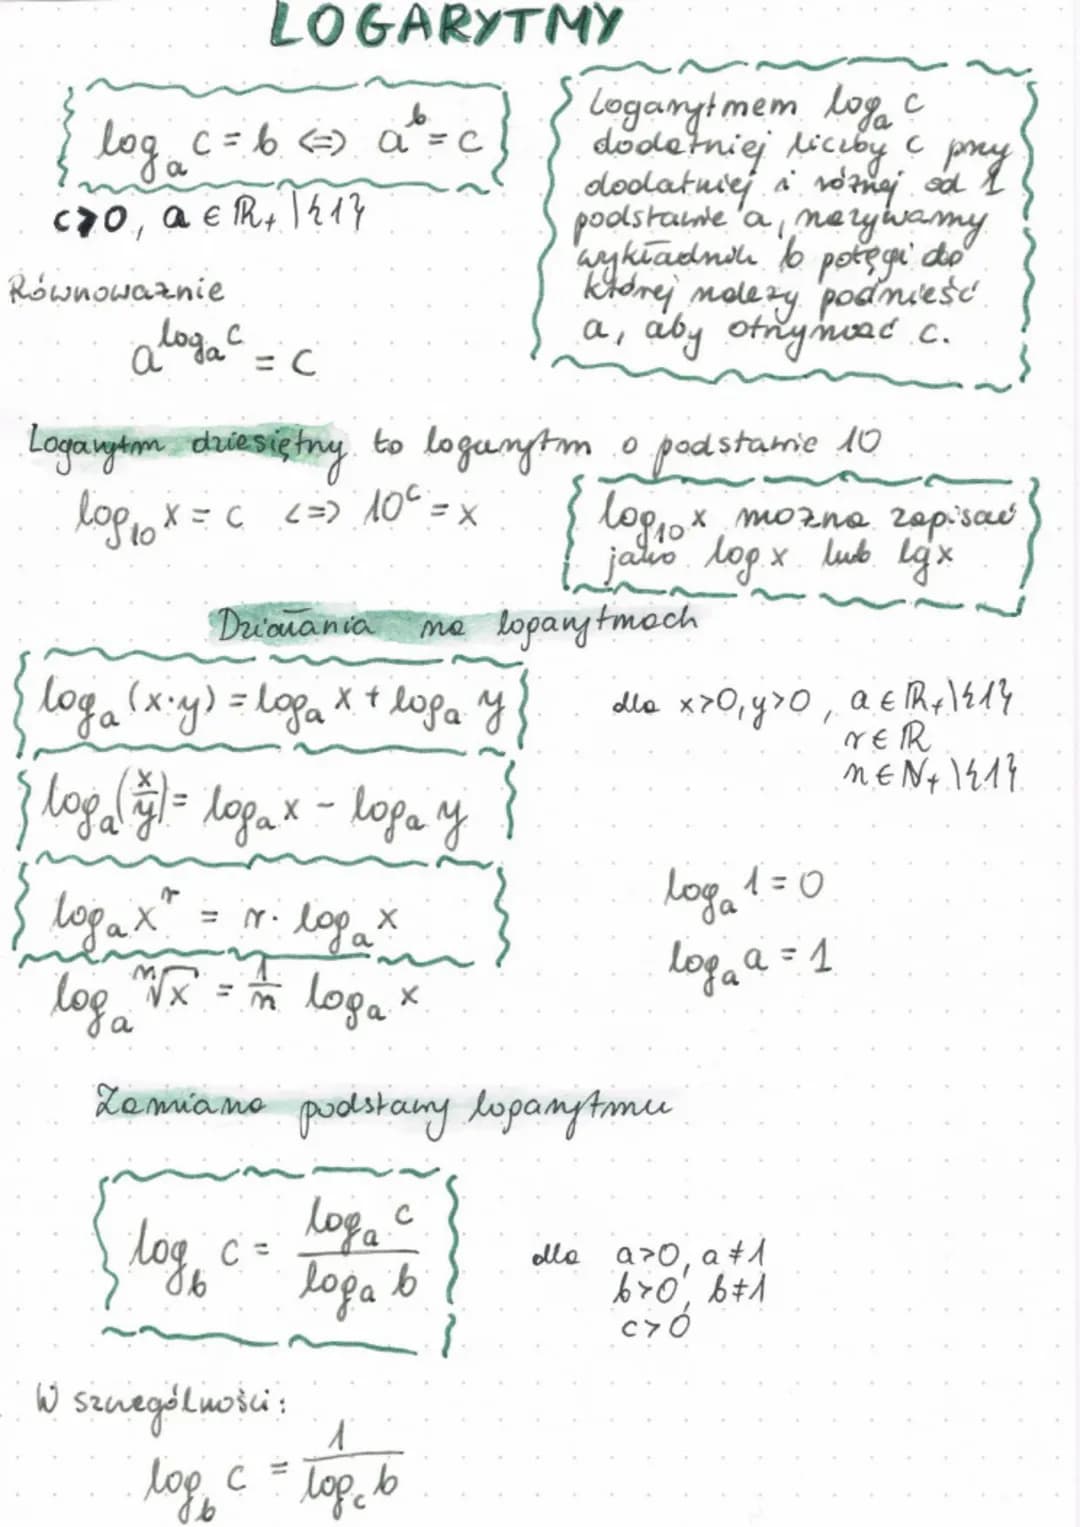 LOGARYTMY
logₐ c = b <=> aᵇ = c
c>0, a ∈ ℝ₊ \ {1}
Logarytmem logₐ c
dodatniej liczby c przy
dodatniej i różnej od 1
podstawie a, nazywamy
wykładnik b potęgi do
której należy podnieść
a, aby otrzymać c.
Równoważnie
a^(logₐ c) = c
Logarytm dziesiętny to logarytm o podstawie 10
log₁₀ x = c <=> 10ᶜ = x
log₁₀ x można zapisać
jako log x lub lg x
Działania na logarytmach
logₐ (x·y) = logₐ x + logₐ y
dla x>0, y>0, a ∈ ℝ₊\{1}
r ∈ ℝ
n ∈ N₊\{1}
logₐ(x/y) = logₐ x - logₐ y
logₐ xʳ = r · logₐ x
logₐ 1 = 0
logₐ a = 1
logₐ ⁿ√x = 1/n logₐ x
Zamiana podstawy logarytmu
log_b c = logₐ c / logₐ b
dla a>0, a≠1
b>0, b≠1
c>0
W szczególności:
log_b c = 1 / log_c b